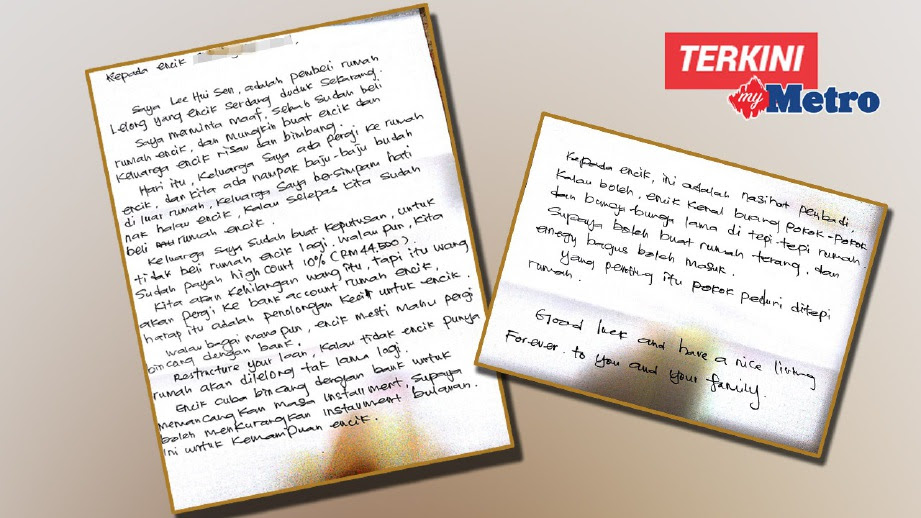 Kepada encik
Saya Lee Hui Sen, adalah pembeli rumah
Lelong yang encik Serdang duduk sekarang.
Saya meminta maaf, sebab sudah beli
rumah encik, dan mungkin buat encik dan
Keluarga encik risau dan bimbang.
Hari itu, Keluarga Saya ada pergi Ke rumah
encik, dan kita ada nampak baju-baju budah
di luar rumah, keluarga Saya bersimpam hati
nak halau encik, Kalau selepas kita sudah
beli rumah encik.
Keluarga saya sudah buat Keputusan, untuk
tidak beli rumah encik lagi. walau pun, kita
Sudah payah high count 10% (RM44,500).
Kita akan Kehilangan wang itu, tapi itu wang
akan pergi Ke bank account rumah encik,
harap itu adalah penolongan Kecil untuk encik.
Walau bagai mana pun, encik mesti mahu pergi
bincang dengan bank.
Restructure your loan, Kalau tidak encik punya
rumah akan dilelong tak lama lagi.
Encik cuba bincang dengan bank untuk
memancangkan masa installment, supaya
boleh menkurangkan installment bulanan.
ini untuk Kemampuan encik.
TERKINI
my Metro
Kepada encik, ini adalah nasihat peribadi,
Kalau boleh, encik Kenal buang pokok-pokok
dan bunga-bunga lama di tepi-tepi rumah.
Supaya boleh buat rumah terang, dan
enegy bagus boleh masuk.
yang penting itu pokok peduri ditepi
rumah.
Good luck and have a nice living
Forever. to you and your family.